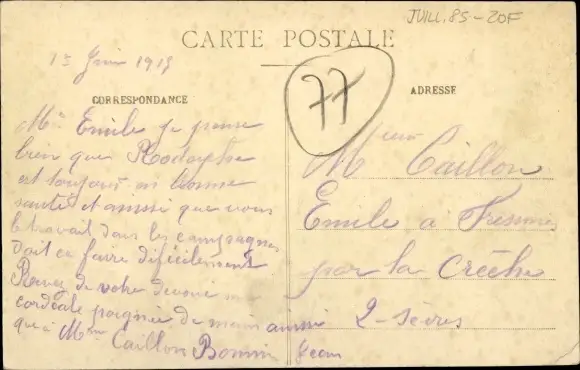 JUILL. 85 - 20F
CARTE POSTALE
15 Juin 1915
CORRESPONDANCE
ADRESSE
77
Mr Emile je pense
bien que Rodolphe
est toujours en bonne
santé et aussi que vous
le travail dans les campagnes
doit ce faire dificilement
Recevez de votre une
cordeale poignee de main aussi
qu'à Mme Caillon Bonnin Jean
Mieur Caillon
Emile a
par la Crèche
2-Sèvres